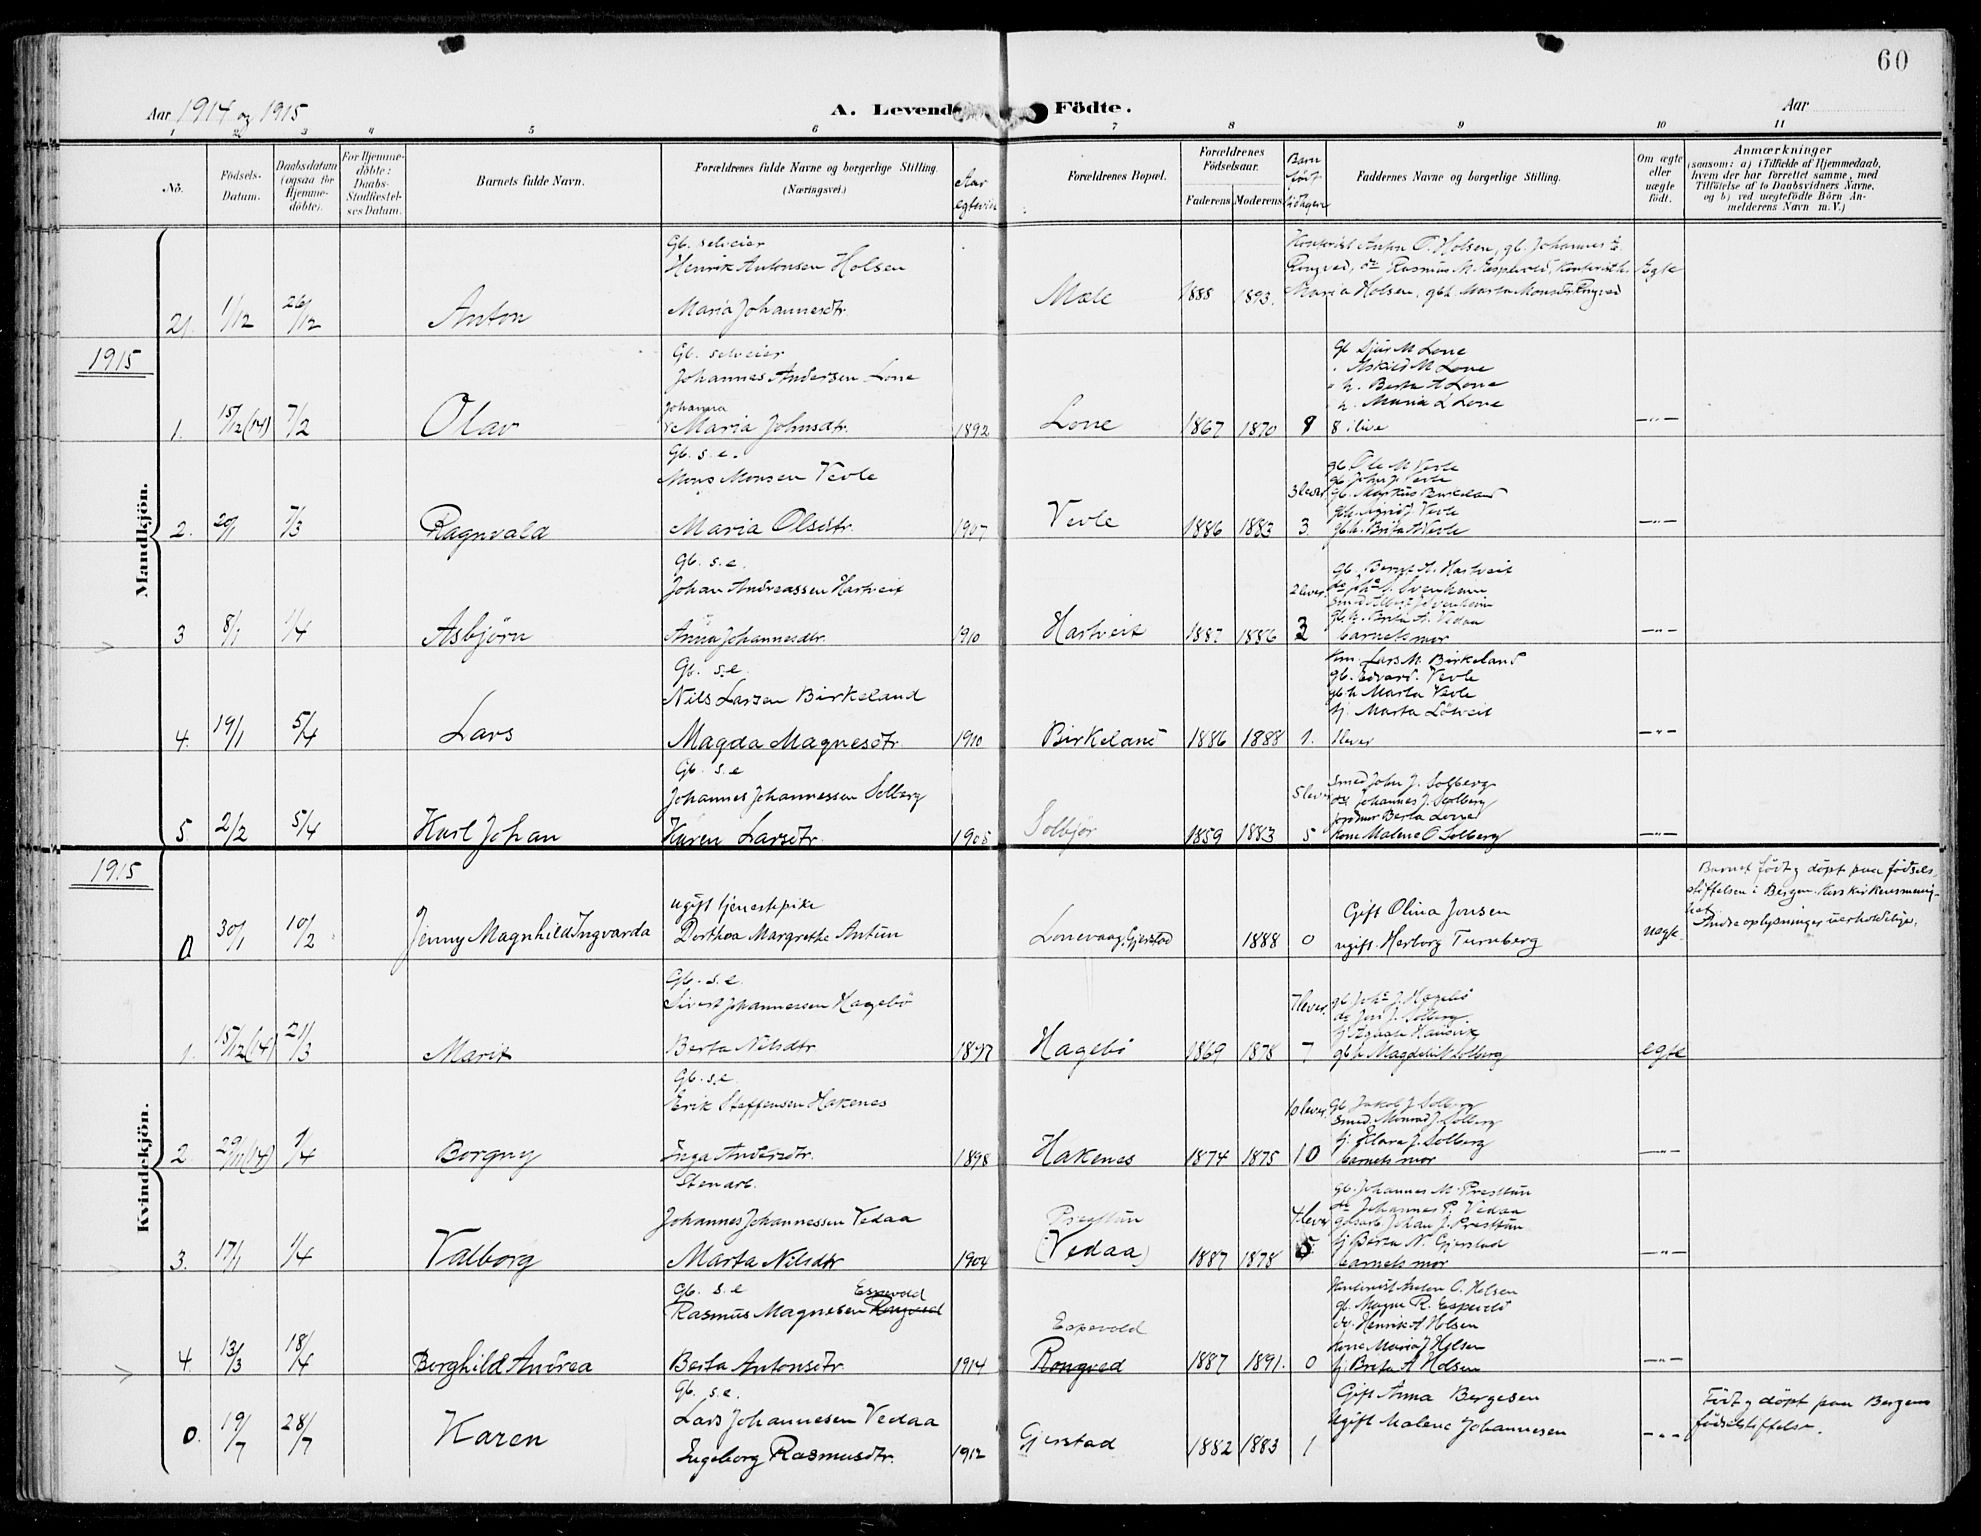 60
Aar 1914 og 1915
A. Levende Födte.
Aar
1 2 3 4 5 6 7 8 9 10 11
No.
Födsels-Datum.
Daabsdatum (ogsaa for Hjemme-döbte).
For Hjemme-döbte: Daabs-Stadfæstel-ses Datum.
Barnets fulde Navn.
Forældrenes fulde Navne og borgerlige Stilling. (Næringsvei.)
Aar egtevie
Forældrenes Bopæl.
Forældrenes Födselsaar.
Faderens Moderens
Barn født
Faddernes Navne og borgerlige Stilling.
Om ægte eller uægte födt.
Anmærkninger
(saasom: a) i Tilfælde af Hjemmedaab, hvem der har forrettet samme, med Tilföielse af to Daabsvidners Navne, og b) ved uegtefödte Börn An-melderens Navn m. V.)
Mandkjön.
21. 1/12 26/12 Anton
Gb. selveier
Henrik Antonsen Holsen
Maria Johannesdtr.
Mæle 1888 1893.
Kontorist Anton O. Holsen, gb. Johannes E.
Rongved, do Rasmus M. Espevold, Kontorist h.
Maria Holsen, gbh. Marta Monsdtr. Rongved
Egte
1915
1. 15/12 (14) 7/2 Olav
Gb. selveier
Johannes Andersen Lone
Johanna
Maria Johnsdtr. 1892
Lone 1867 1870 9
Gb Sjur M Lone
M Lone
h. Berta A Lone
h. Maria L Lone
8 ilive
—"—
2. 20/1 7/3 Ragnvald
Gb. s.e.
Mons Monsen Vevle
Maria Olsdtr. 1907
Vevle 1886 1883 3 lever 3.
gb. Ole M Vevle
gb. John J. Vevle
gb. Markus Birkeland
gbh. Vevle
gbh. Brita Vevle
—"—
3 8/1 1/4 Asbjørn
Gb. s.e.
Johan Andreassen Hartveit
Anna Johannesdtr. 1910
Hartveit 1887 1886 2 lever 3
Gb. Bernt A. Hartveit
gbh. Brita A. Vedaa
barnets mor
—"—
4. 19/1 5/4 Lars
Gb. s.e
Nils Larsen Birkeland
Magda Magnesdtr 1910
Birkeland 1886 1888 1.
Lars M. Birkeland
gb. Edvard Vevle
gbh Marta Vevle
pj. Marta Løtveit
1 lever
—"—
5. 2/2 5/4 Karl Johan
Gb. s.e
Johannes Johannessen Solberg
Karen Larsdtr. 1905
Solbjør 1859 1883 5 lever 5
Smed John J. Solberg
do Johannes J. Solberg
jordmor Berta Lone
Kone Malene O Solberg
—"—
Kvindekjön.
1915
0 30/1 10/2 Jenny Magnhild Ingvarda
ugift tjenestepike
Dorthea Margrethe Antun
Lonevaag, Gjerstad 1888 0
Gift Olina Jonsen
ugift Herborg Turnberg
uegte.
Barnet født og døpt paa fødsels
stiftelsen i Bergen. Korskirkensmenig-
het
Andre oplysninger uerholdelige.
1. 15/12 (14) 21/3 Marit
Gb. s.e.
Sivert Johannessen Hagebø
Berta Nilsdtr. 1897
Hagebø 1869 1878 7 lever. 7
gb. Johs J. Hagebø
do J. Solberg
gbh Magdeli Solberg
egte
2 29/11 (14) 1/4 Borgny
Gb. s.e
Erik Steffensen Hakenes
Inga Andersdtr. 1898
Hakenes 1874 1875 10 lever. 10
Gb. Jakob J. Solberg
Smed. Monrad J. Solberg
pj. Klara J. Solberg
barnets mor
—"—
3. 17/1 1/4 Valborg
Stenarb.
Johannes Johannessen Vedaa
Marta Nilsdtr 1904
Presttun
(Vedaa) 1887 1878 4 lever 5
Gb. Johannes M. Presttun
do Johannes P. Vedaa
Johan J. Presttun
pj Berta N. Gjerstad
barnets mor
—"—
4. 13/3 18/4 Borghild Andrea
Gb. s.e Espevold
Rasmus Magnesen Rongved
Berta Antonsdtr. 1914
Espevold
Rongved 1887 1891. 0
Kontorist Anton O. Holsen
gb. Magne R. Espevold
do. Henrik A Holsen
kone Maria J Holsen
pj. Brita A Holsen
—"—
0. 19/7 28/7 Karen
Gb. s.e.
Lars Johannesen Vedaa
Ingeborg Rasmusdtr. 1912
Gjerstad 1882 1883 1
Gift Anna Bergesen
Ugift Malene Johannesen
—"—
Født og døpt paa Bergens
fødselstiftelse.